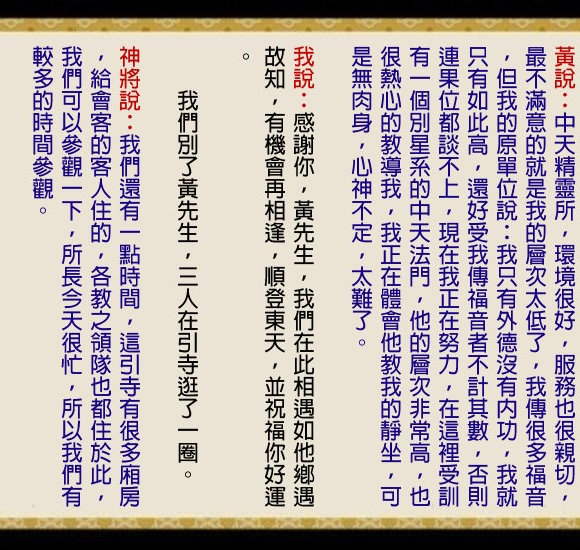 黃說：中天精靈所，環境很好，服務也很親切，
最不滿意的就是我的層次太低了，我傳很多福音
，但我的原單位說：我只有外德沒有內功，我就
只有如此高，還好受我傳福音者不計其數，否則
連果位都談不上，現在我正在努力，在這裡受訓
有一個別星系的中天法門，他的層次非常高，也
很熱心的教導我，我正在體會他教我的靜坐，可
是無肉身，心神不定，太難了。
我說：感謝你，黃先生，我們在此相遇如他鄉遇
故知，有機會再相逢，順登東天，並祝福你好運
。
我們別了黃先生，三人在引寺逛了一圈。
神將說：我們還有一點時間，這引寺有很多廂房
，給會客的客人住的，各教之領隊也都住於此，
我們可以參觀一下，所長今天很忙，所以我們有
較多的時間參觀。